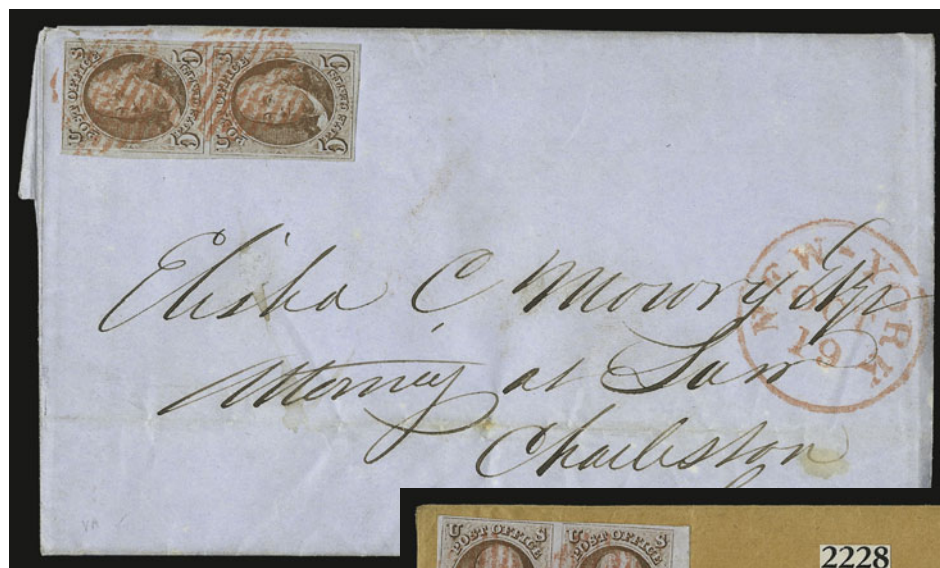 U POST OFFICE S
5 FIVE CENTS 5
U POST OFFICE S
5 FIVE CENTS 5
Elisha C Mowry Esqr
Attorney at Law
Charleston
NEW-YORK
19
U POST OFFICE S
U POST OFFICE S
2228